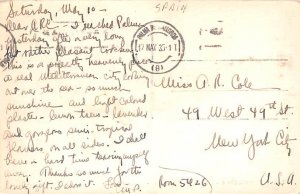 Saturday, May 10 -
SPAIN
Dear A.R.C. - I reached Palma
yesterday after a very long
but rather pleasant
This is a perfectly heavenly place
a real Mediterranean city looking
out over the sea - so much
sunshine and light colored
plaster - lemon trees - lavender
and gorgeous semi-tropical
flowers on all sides. I shall
have a hard time tearing myself
away. Thanks so much for
the lovely
17 MAY
(B)
Miss A. R. Cole
49 West 49th St.
New York City
Room 5426
U.S.A